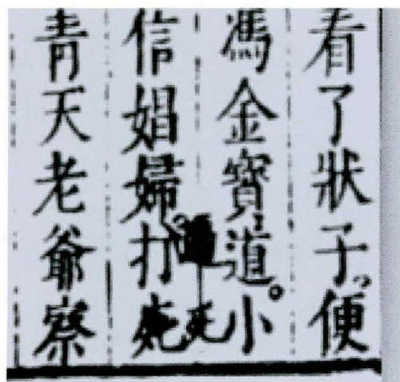 看了狀子、便
馮金寶道。小
信娼婦打
青天老爺察